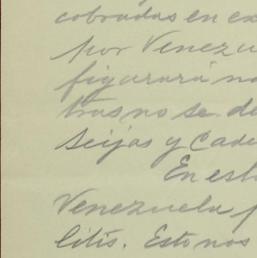 cobradas en ex
por Venezue
figurará no
tras no se de
Seijas y Cade
En est
Venezuela p
litis. Esto nos